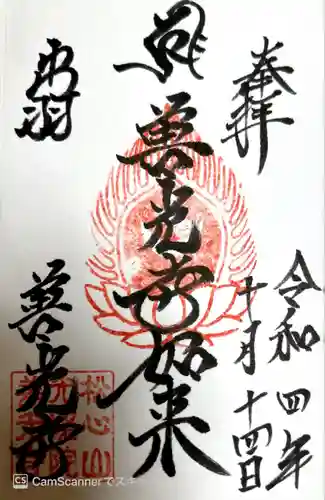 奉拝
令和四年
十月十四日
善光寺如来
出羽
善光寺
松心山
CS CamScannerでス